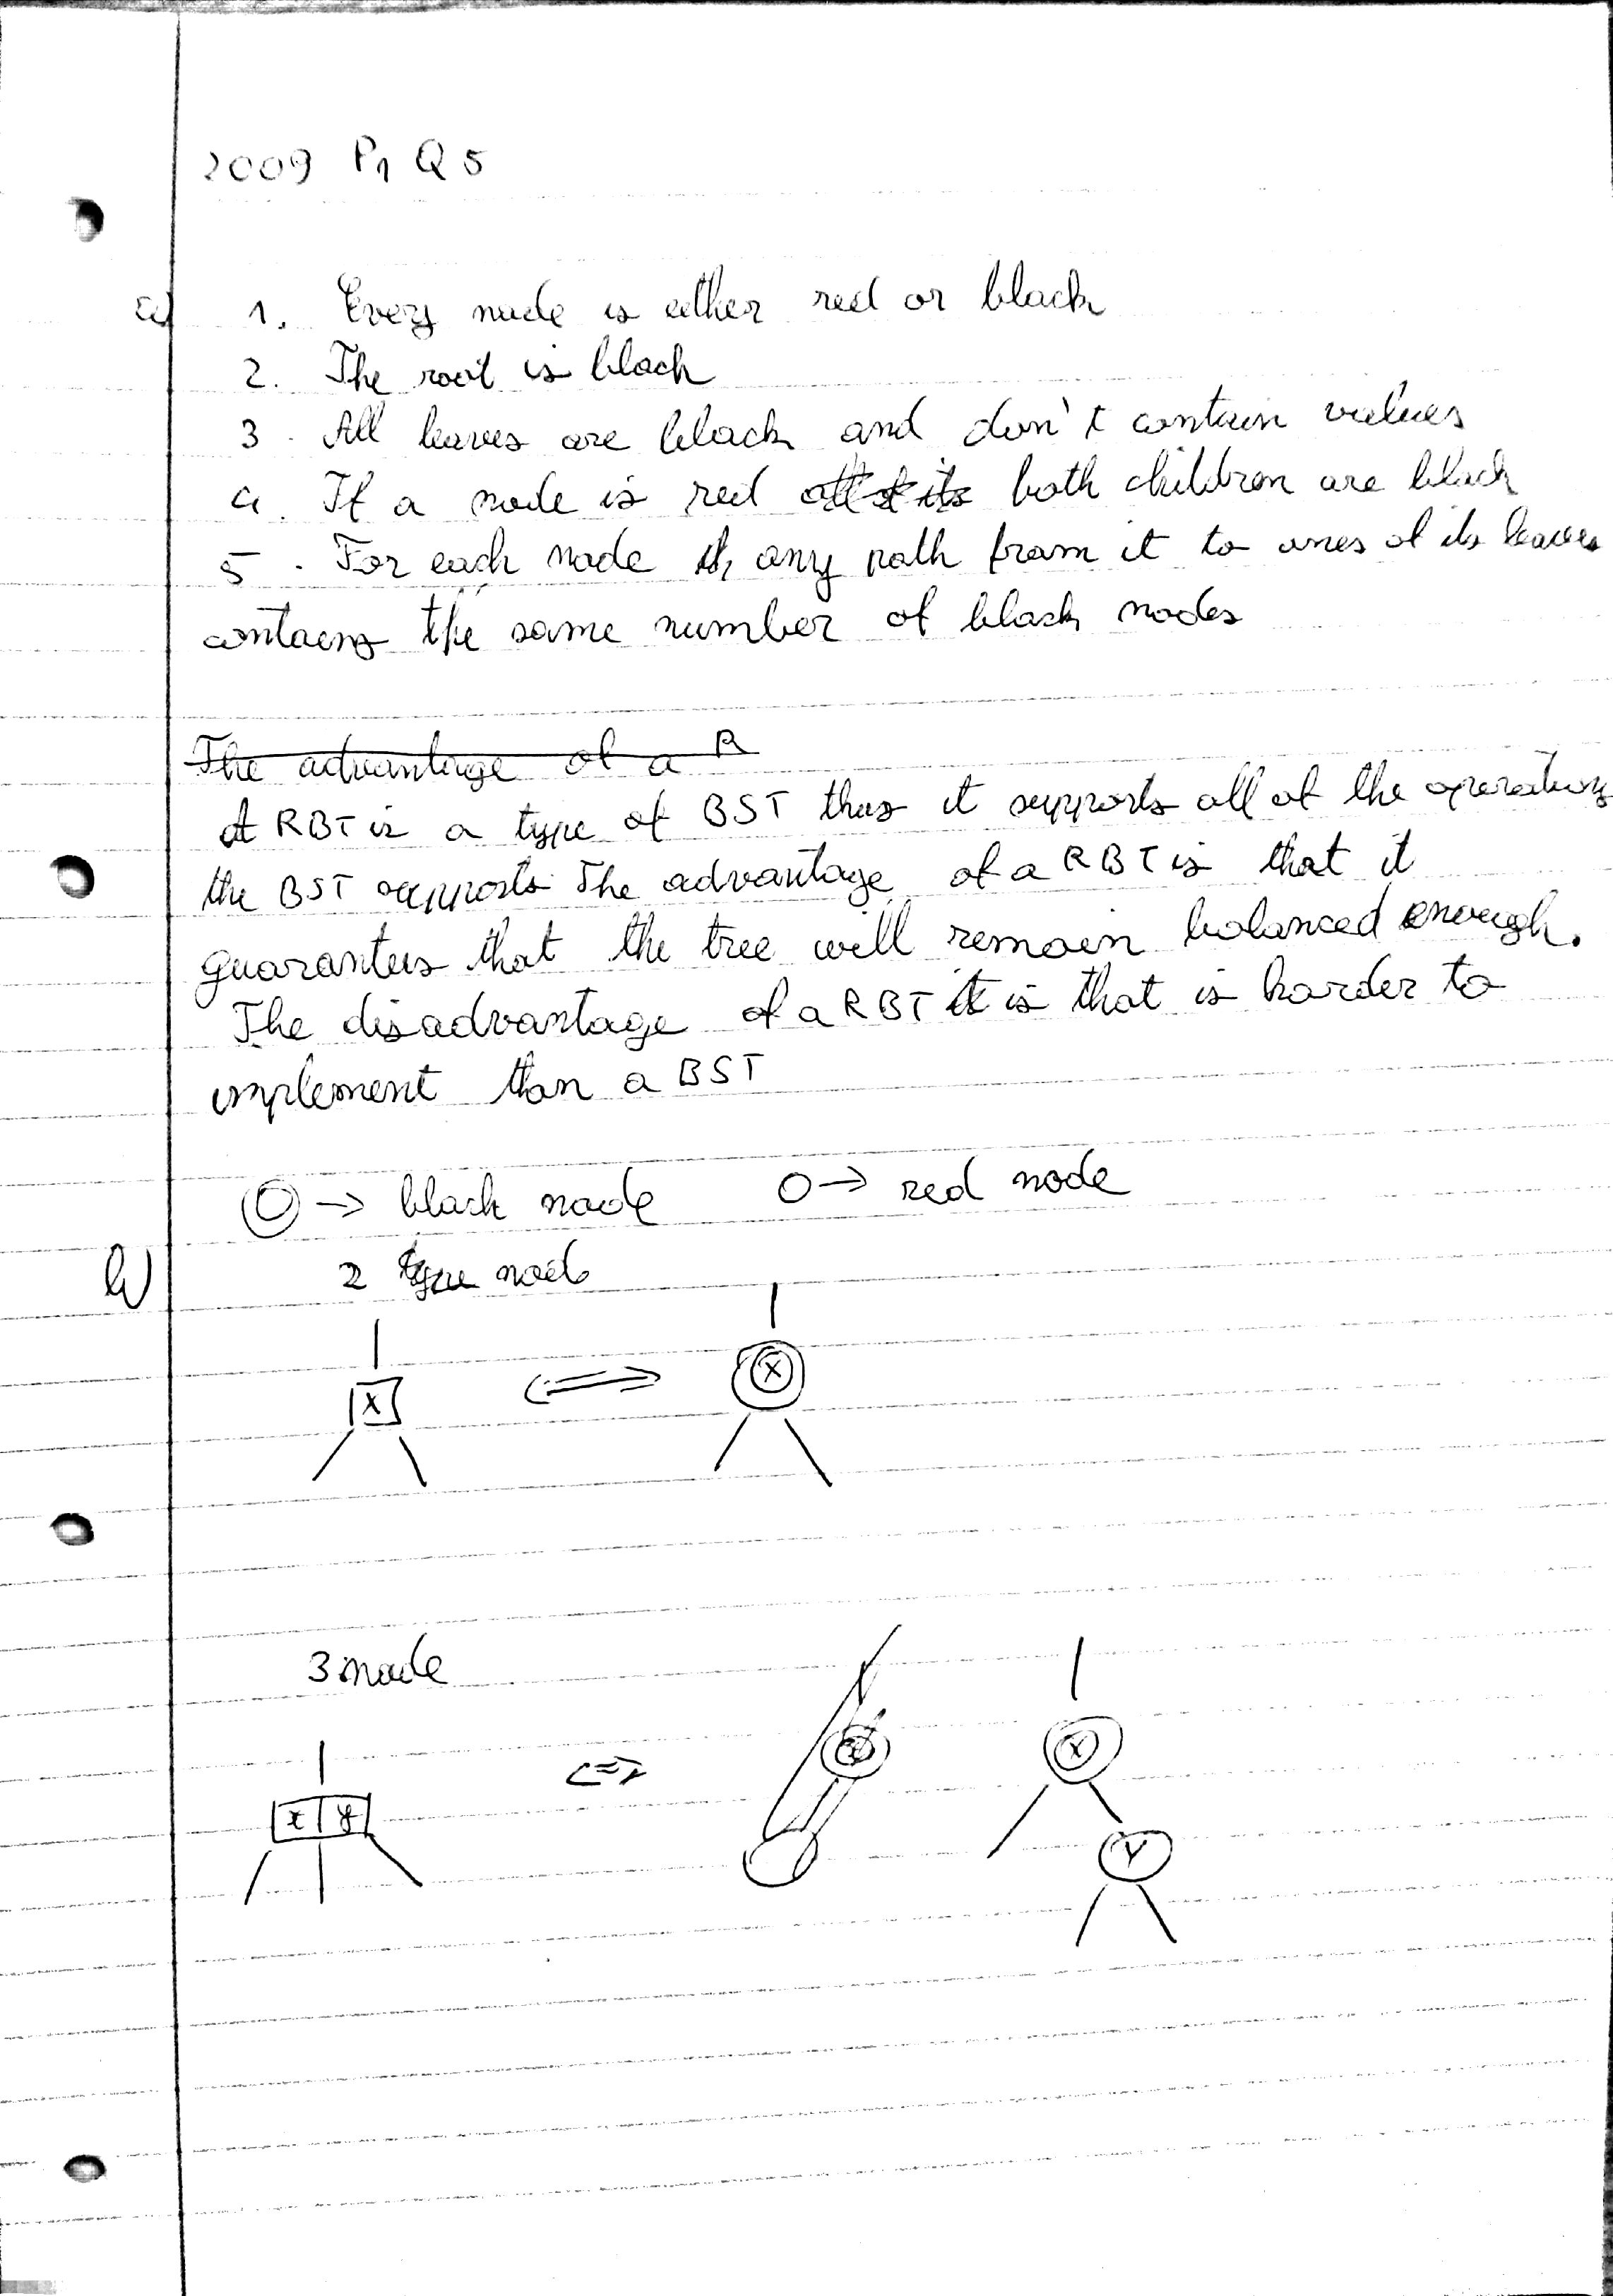 2009 P1 Q5
a) 1. Every node is either red or black
2. The root is black
3. All leaves are black and don't contain values
4. If a node is red both children are black
5. For each node any path from it to ones of its leaves
contains the same number of black nodes
The advantage of a R
A RBT is a type of BST thus it supports all of the operations
the BST supports. The advantage of a RBT is that it
guarantees that the tree will remain balanced enough.
The disadvantage of a RBT is that is harder to
implement than a BST
→ black node → red node
b) 2 type node
x ⟺ x
3 node
x y ⟺ x
y